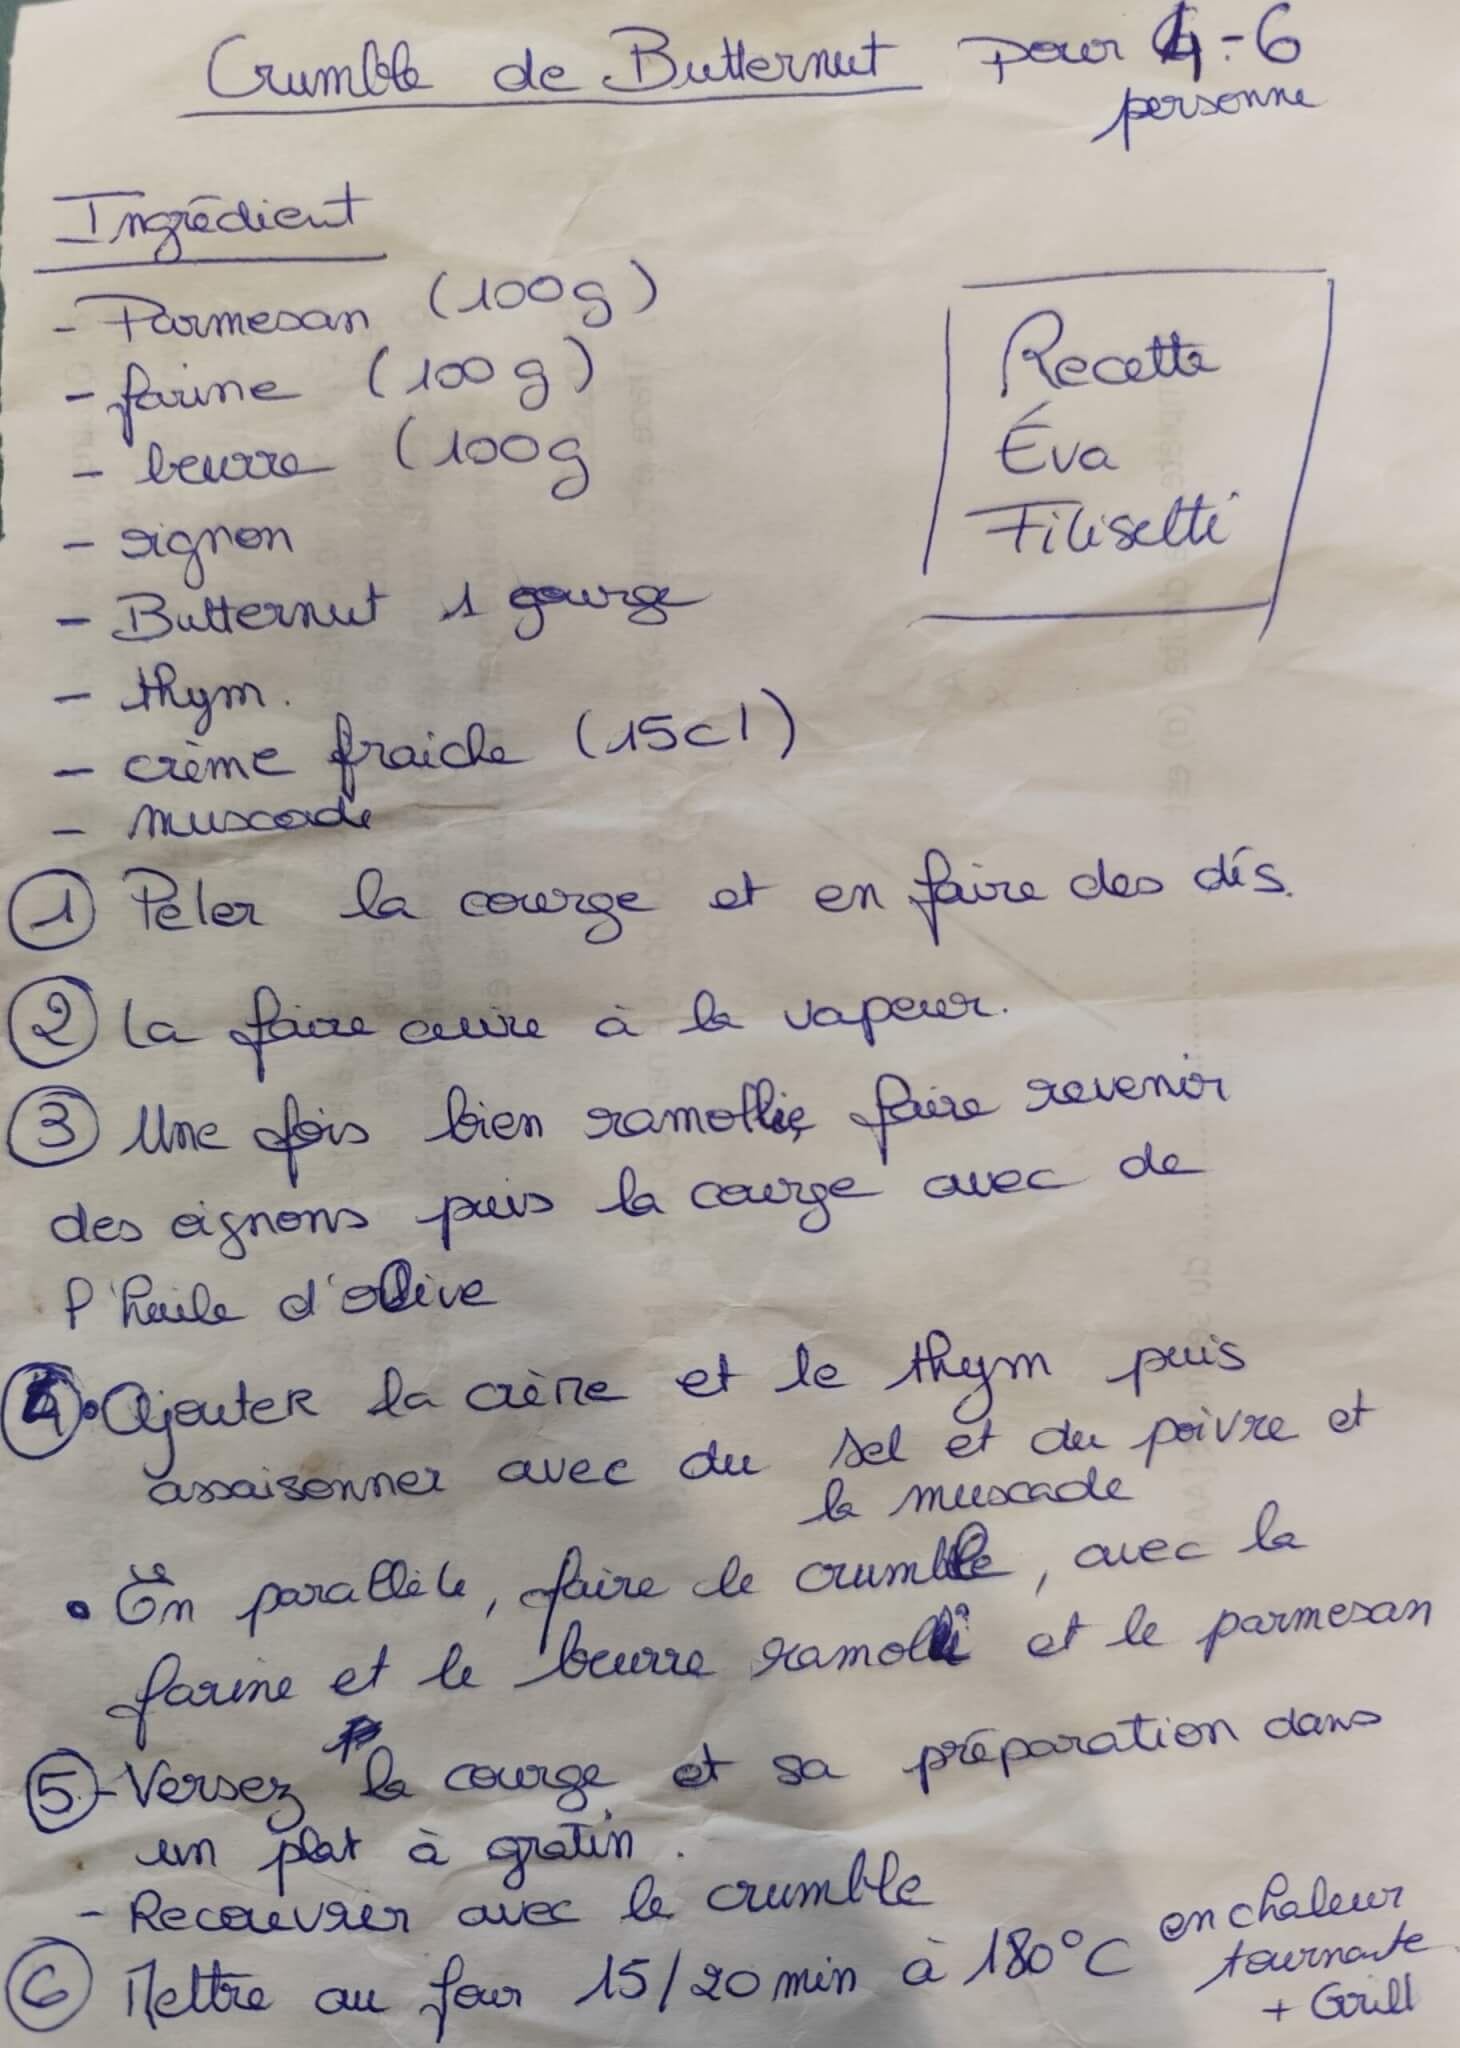 Crumble de Butternut pour 4-6
personne
Ingrédient
- Parmesan (100g)
- farine (100g)
- beurre (100g
- oignon
- Butternut 1 courge
- thym.
- crème fraiche (15cl)
- muscade
Recette
Éva
Filisetti
① Peler la courge et en faire des dés.
② La faire cuire à la vapeur.
③ Une fois bien ramollie, faire revenir
des oignons puis la courge avec de
l'huile d'olive
④ • Ajouter la crème et le thym puis
assaisonner avec du sel et du poivre et
la muscade
• En parallèle, faire le crumble, avec la
farine et le beurre ramolli et le parmesan
⑤ - Versez la courge et sa préparation dans
un plat à gratin.
- Recouvrir avec le crumble
⑥ Mettre au four 15/20 min à 180°C en chaleur
tournante
+ Grill